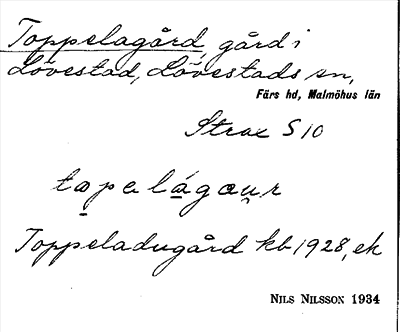 Toppelagård, gård i
Lövestad, Lövestads sn,
Färs hd, Malmöhus län
Strax S 10
tɷpelágæu̯r
Toppeladugård kb 1928, ek
NILS NILSSON 1934